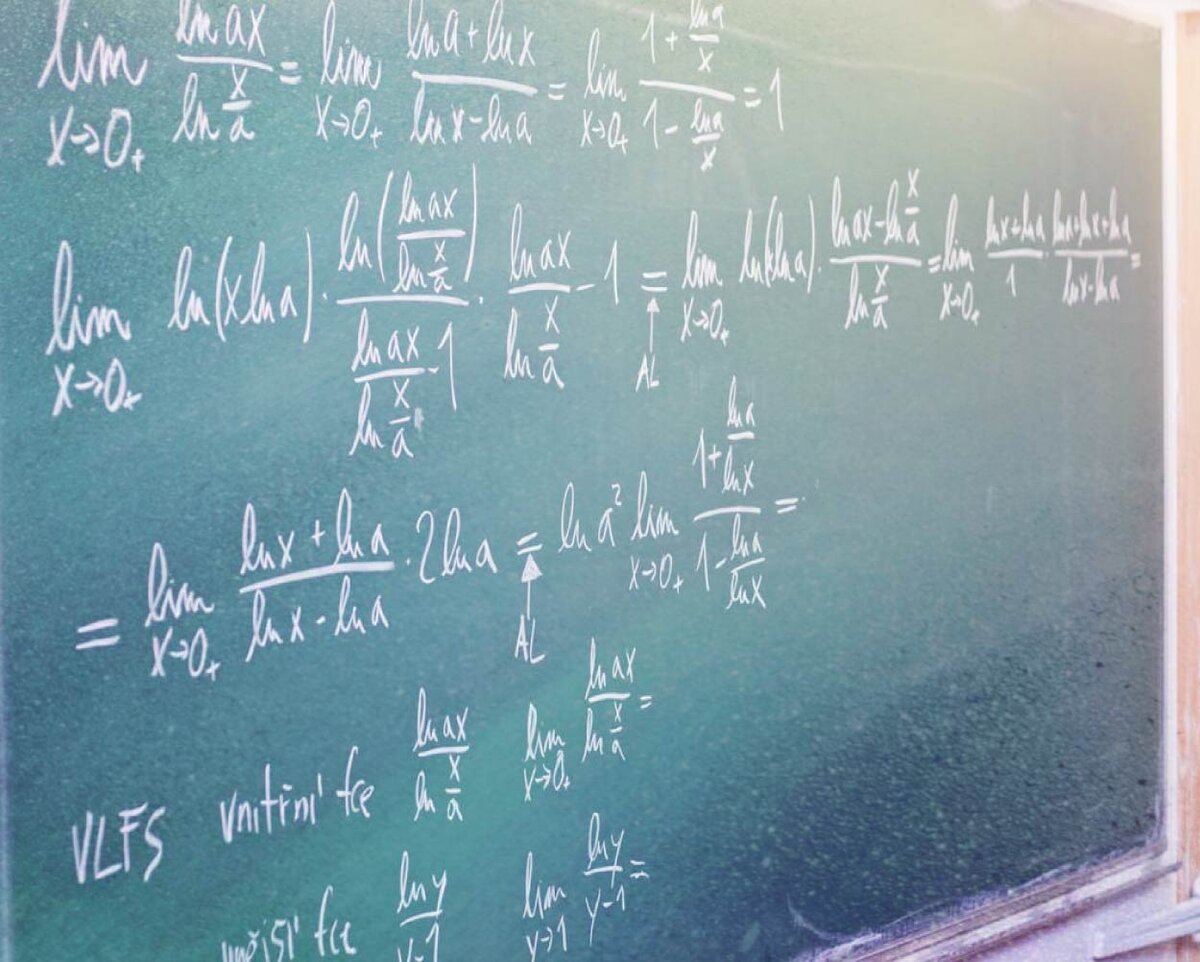 lim x→0₊ (ln ax)/(ln x/a) = lim x→0₊ (ln a + ln x)/(ln x - ln a) = lim x→0₊ (1 + (ln a)/x)/(1 - (ln a)/x) = 1
lim x→0₊ ln(x ln a) · ln((ln ax)/(ln x/a))/((ln ax)/(ln x/a) - 1) · (ln ax)/(ln x/a) - 1 = lim x→0₊ ln(x ln a) · (ln ax - ln x/a)/(ln x/a) = lim x→0₊ (ln x + ln a)/1 · (ln a + ln x + ln a)/(ln x - ln a) =
AL
= lim x→0₊ (ln x + ln a)/(ln x - ln a) · 2 ln a = ln a² lim x→0₊ (1 + (ln a)/(ln x))/(1 - (ln a)/(ln x)) =
AL
VLFS vnitřní fce (ln ax)/(ln x/a) lim x→0₊ (ln ax)/(ln x/a) =
vnější fce (ln y)/(y-1) lim y→1 (ln y)/(y-1) =